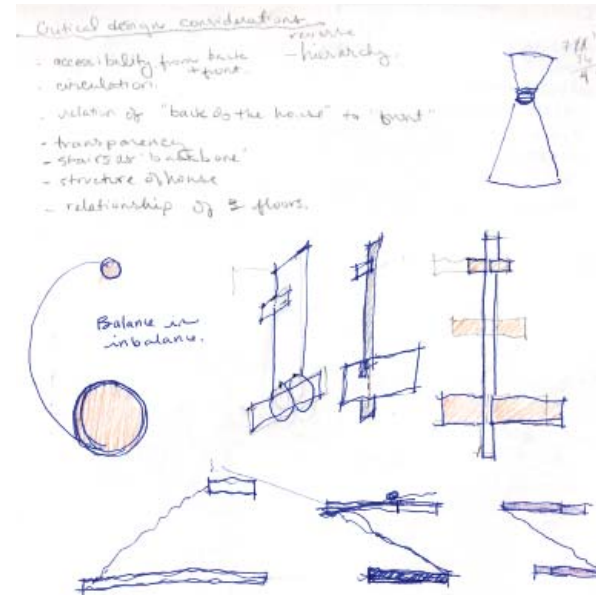 Critical design considerations
reverse
- accessibility from back - hierarchy.
+ front.
- circulation.
- relation of "back do the house" to "front"
- transparency
- stairs as 'backbone'
- structure of house
- relationship of 3 floors.
Balance in
inbalance.